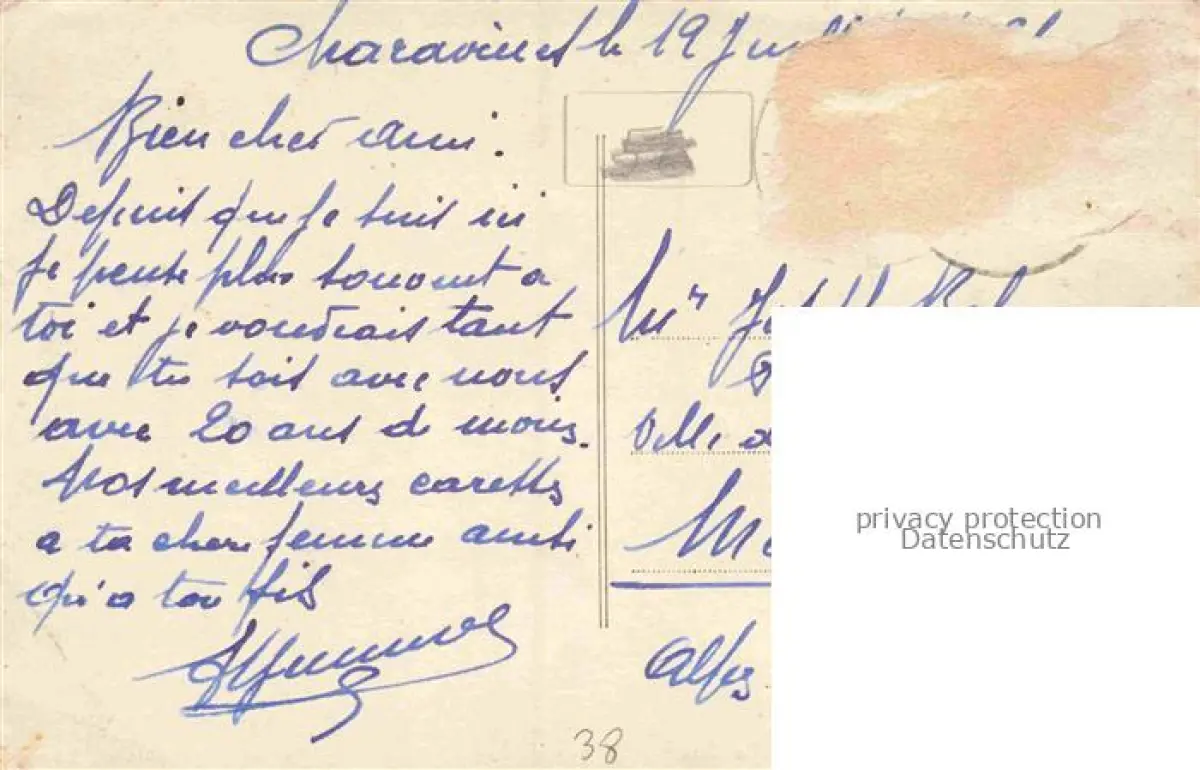 Charavines le 19
Bien cher ami.
Depuis que je suis ici
je pense plus souvent a
toi et je voudrais tant
que tu sois avec nous
avec 20 ans de moins.
Nos meilleurs caresses
a ta chere femme ainsi
qu'a ton fils
Mr
Mr
Alpes
38
privacy protection
Datenschutz